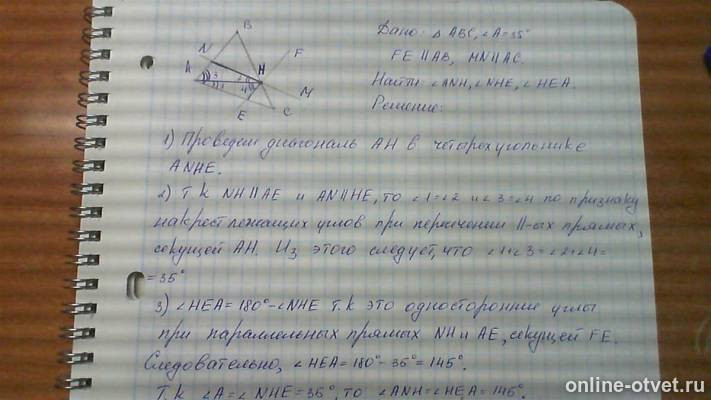 B
N
F
A
3
2
H
1
4
M
E
C
Дано: △ ABC, ∠A=35°
FE || AB, MN || AC.
Найти: ∠ANH, ∠NHE, ∠HEA.
Решение:
1) Проведем диагональ AH в четырехугольнике
ANHE.
2) Т.к NH || AE и AN || HE, то ∠1=∠2 и ∠3=∠4 по признаку
накрест лежащих углов при пересечении ||-ых прямых,
секущей AH. Из этого следует, что ∠1+∠3=∠2+∠4=
=35°
3) ∠HEA=180°-∠NHE т.к это односторонние углы
при параллельных прямых NH и AE, секущей FE.
Следовательно, ∠HEA=180°-35°=145°.
Т.к ∠A=∠NHE=35°, то ∠ANH=∠HEA=145°.
online-otvet.ru